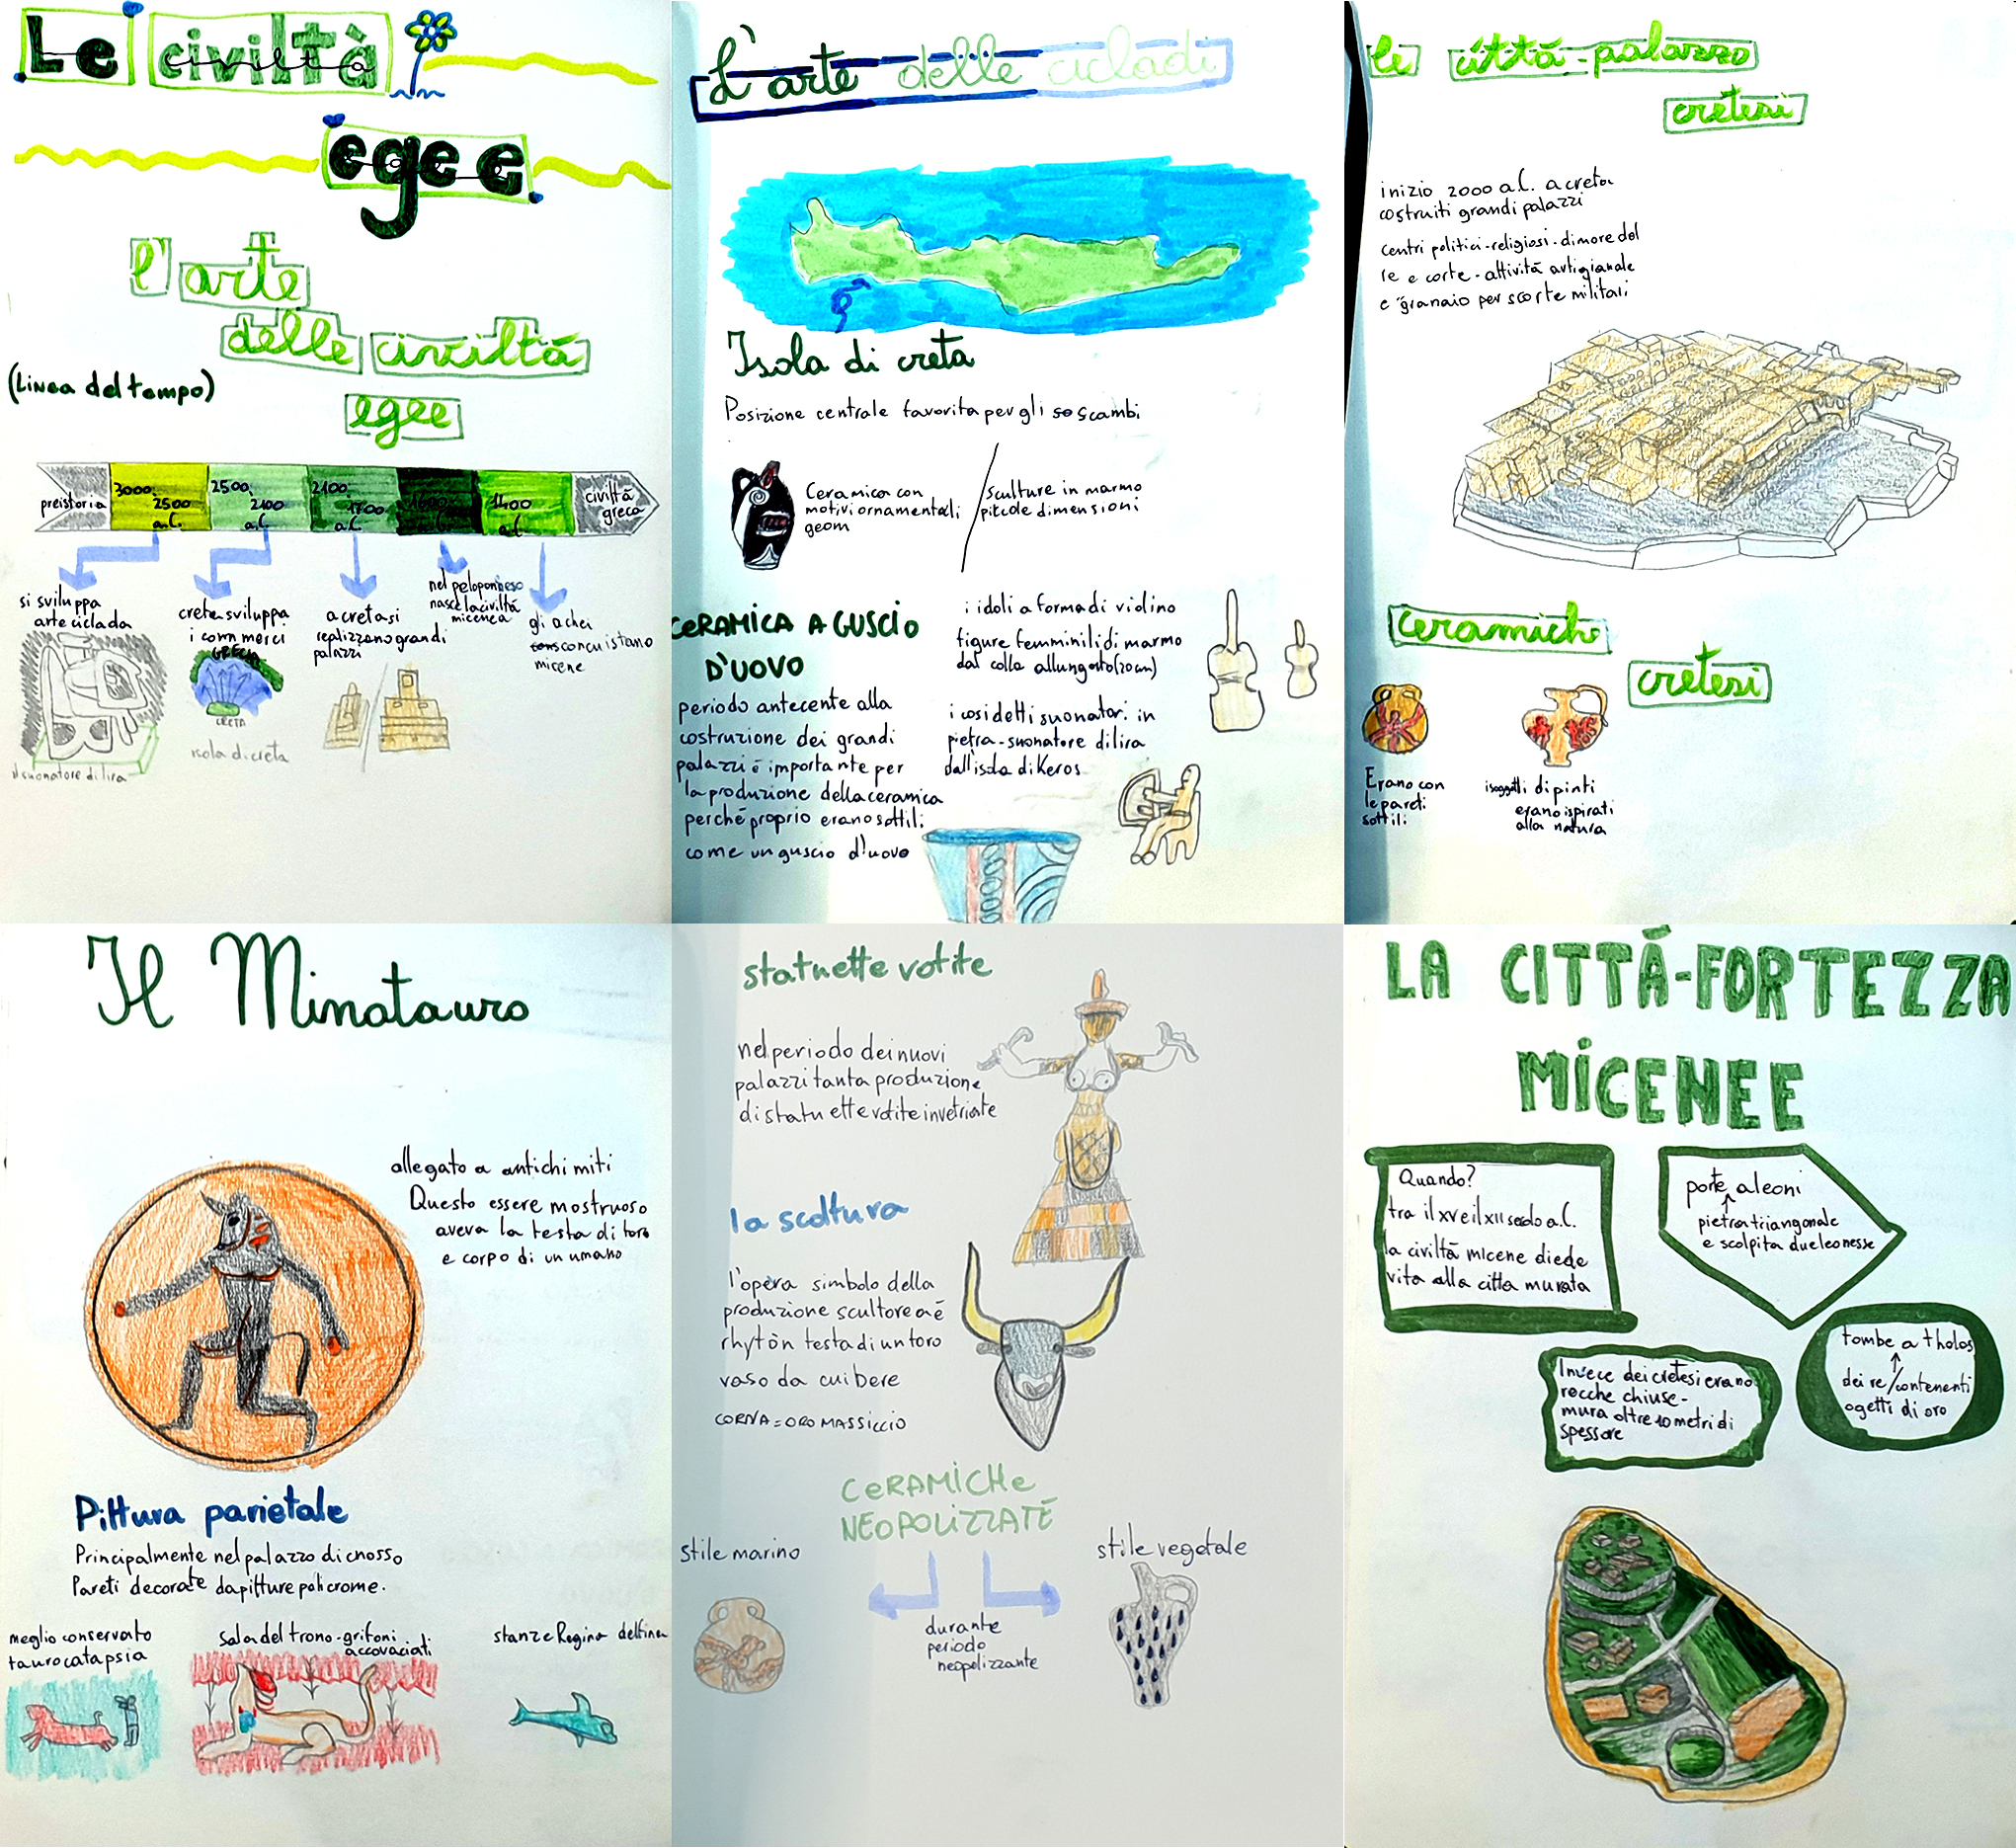 Le civiltà
egee
l'arte
delle civiltà
egee
(Linea del tempo)
preistoria
3000
2500
a.C.
2500
2100
a.C.
2100
1700
a.C.
1600
a.C.
1400
a.C.
civiltà
greca
si sviluppa
arte ciclada
il suonatore di lira
creta sviluppa
i commerci
GRECIA
CRETA
isola di creta
a creta si
realizzano grandi
palazzi
nel peloponneso
nasce la civiltà
micenea
gli achei
conscuistano
micene
L'arte delle cicladi
Isola di creta
Posizione centrale favorita per gli so scambi
Ceramica con
motivi ornamentali
geom
sculture in marmo
piccole dimensioni
CERAMICA A GUSCIO
D'UOVO
periodo antecente alla
costruzione dei grandi
palazzi é importante per
la produzione della ceramica
perché proprio erano sottili
come un guscio d'uovo
i idoli a forma di violino
figure femminili di marmo
dal collo allungato (20cm)
i cosidetti suonatori in
pietra-suonatore di lira
dall'isola di Keros
le città-palazzo
cretesi
inizio 2000 a.C. a creta
costruiti grandi palazzi
centri politici-religiosi-dimore del
re e corte-attività artigianale
e granaio per scorte militari
ceramiche
cretesi
Erano con
le pareti
sottili
i soggetti dipinti
erano ispirati
alla natura
Il Minotauro
allegato a antichi miti
Questo essere mostruoso
aveva la testa di toro
e corpo di un umano
Pittura parietale
Principalmente nel palazzo di cnosso
Pareti decorate da pitture policrome.
meglio conservato
taurocatapsia
Sala del trono-grifoni
accovaciati
stanze Regina delfina
statuette votite
nel periodo dei nuovi
palazzi tanta produzione
di statuette votite invetriate
la scoltura
l'opera simbolo della
produzione scultorea é
rhytòn testa di un toro
vaso da cui bere
CORNA = ORO MASSICCIO
CERAMICHE
NEOPOLIZZATE
stile marino
stile vegetale
durante
periodo
neopolizzante
LA CITTÁ-FORTEZZA
MICENEE
Quando?
tra il xv e il xii secolo a.C.
la civiltà micene diede
vita alla citta murata
porte aleoni
pietra triangonale
e scolpita due leonesse
Invece dei cretesi erano
rocche chiuse-
mura oltre 10 metri di
spessore
tombe a tholos
dei re/contenenti
ogetti di oro